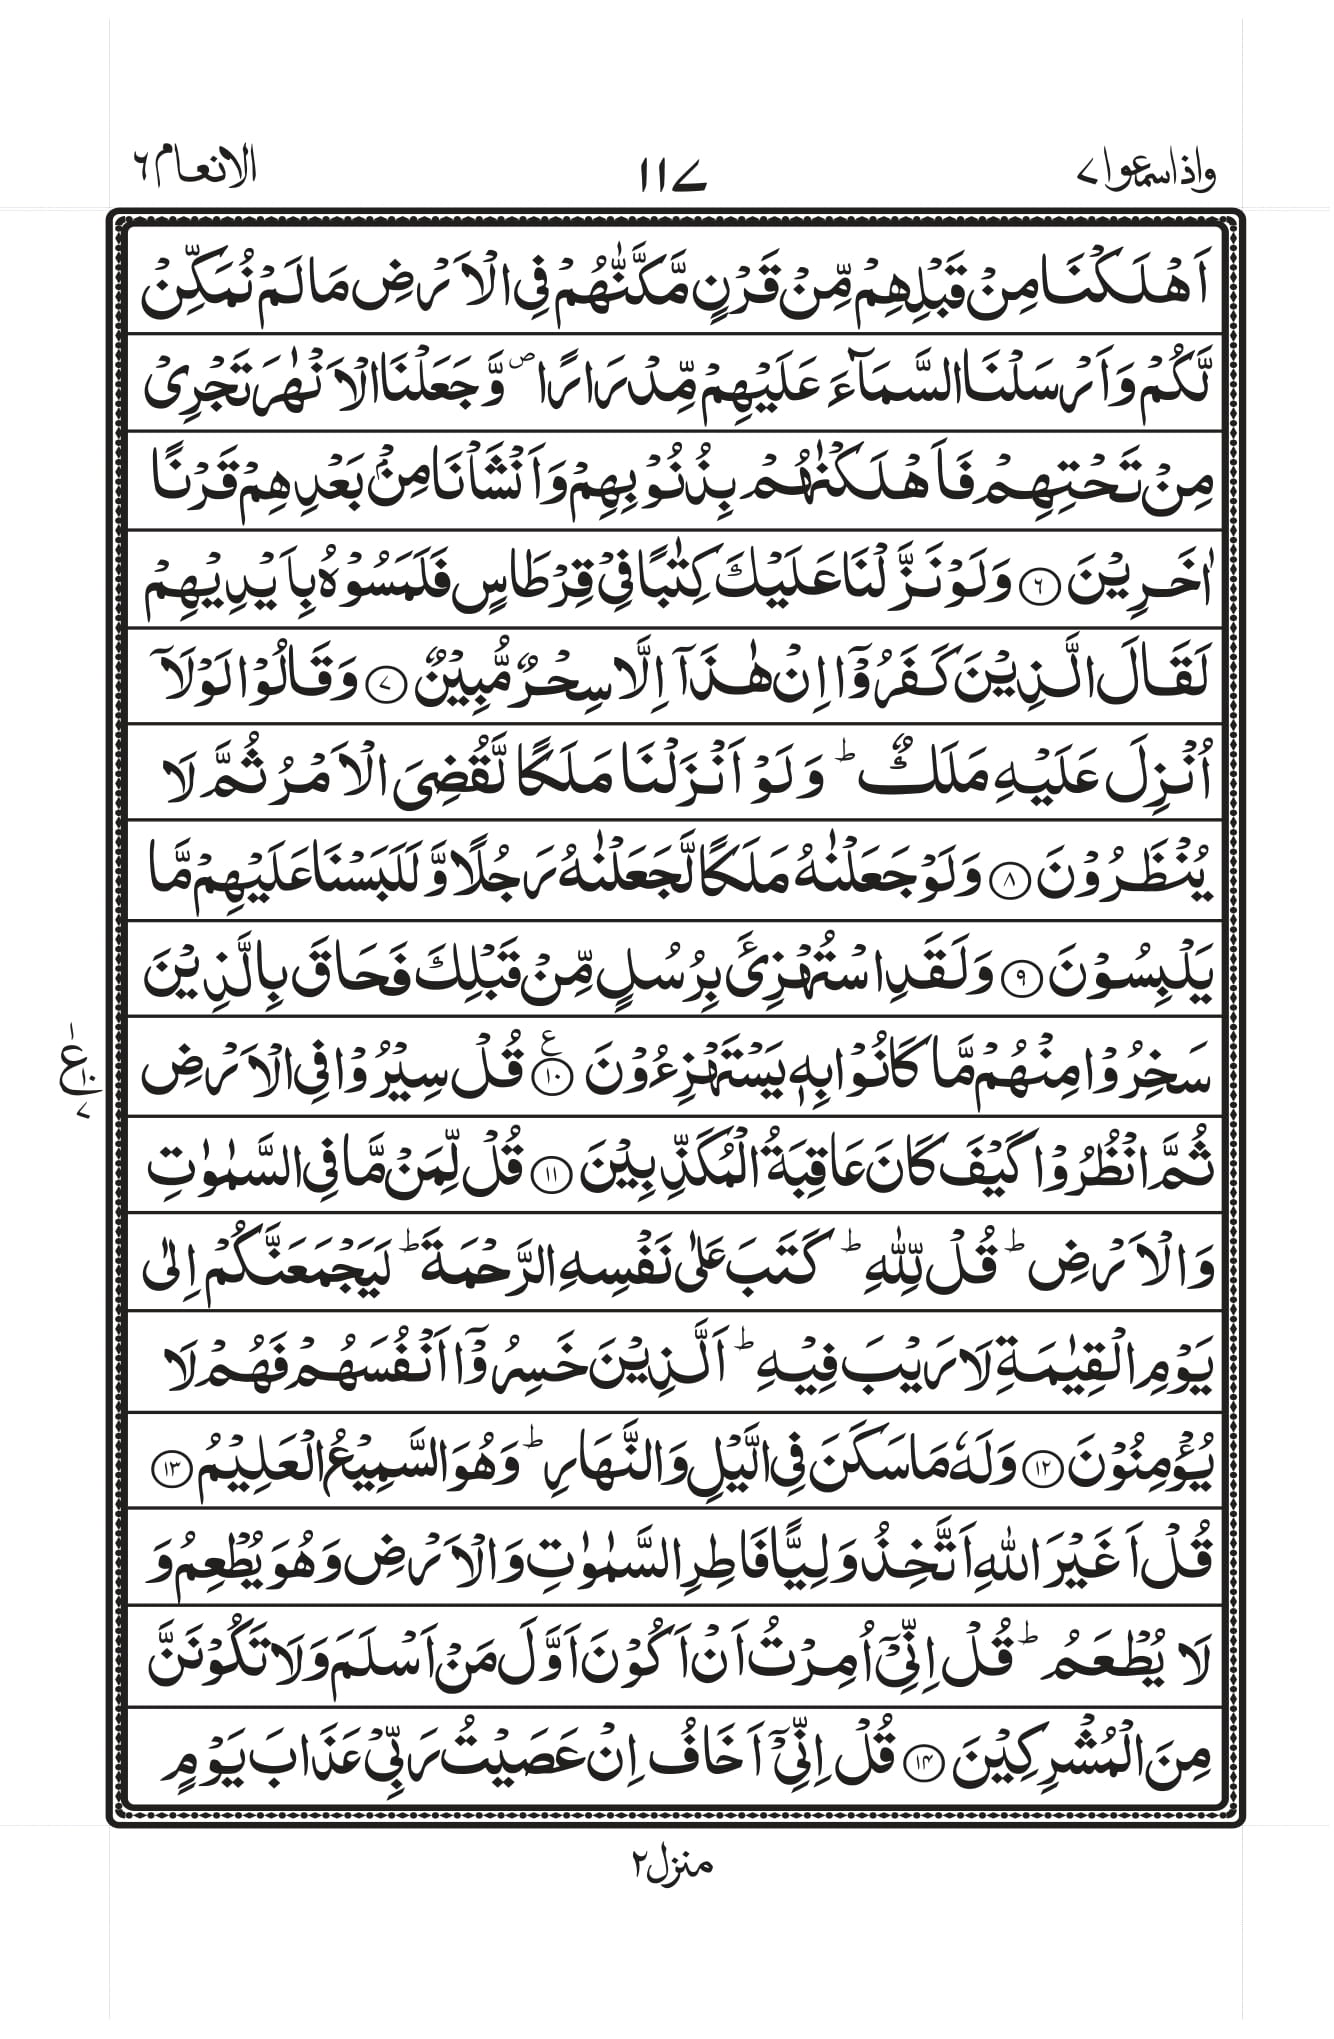 واذاسمعوا ٧
١١٧
الانعام ٦
اَهۡلَكۡنَا مِنۡ قَبۡلِهِمۡ مِّنۡ قَرۡنٍ مَّكَّنّٰهُمۡ فِى الۡاَرۡضِ مَا لَمۡ نُمَكِّنۡ
لَّكُمۡ وَاَرۡسَلۡنَا السَّمَآءَ عَلَيۡهِمۡ مِّدۡرَارًا ص وَّجَعَلۡنَا الۡاَنۡهٰرَ تَجۡرِىۡ
مِنۡ تَحۡتِهِمۡ فَاَهۡلَكۡنٰهُمۡ بِذُنُوۡبِهِمۡ وَاَنۡشَاۡنَا مِنۡۢ بَعۡدِهِمۡ قَرۡنًا
اٰخَرِيۡنَ ۝٦ وَلَوۡ نَزَّلۡنَا عَلَيۡكَ كِتٰبًا فِىۡ قِرۡطَاسٍ فَلَمَسُوۡهُ بِاَيۡدِيۡهِمۡ
لَقَالَ الَّذِيۡنَ كَفَرُوۡۤا اِنۡ هٰذَاۤ اِلَّا سِحۡرٌ مُّبِيۡنٌ ۝٧ وَقَالُوۡا لَوۡلَاۤ
اُنۡزِلَ عَلَيۡهِ مَلَكٌ ؕ وَلَوۡ اَنۡزَلۡنَا مَلَكًا لَّقُضِىَ الۡاَمۡرُ ثُمَّ لَا
يُنۡظَرُوۡنَ ۝٨ وَلَوۡ جَعَلۡنٰهُ مَلَكًا لَّجَعَلۡنٰهُ رَجُلًا وَّلَلَبَسۡنَا عَلَيۡهِمۡ مَّا
يَلۡبِسُوۡنَ ۝٩ وَلَقَدِ اسۡتُهۡزِئَ بِرُسُلٍ مِّنۡ قَبۡلِكَ فَحَاقَ بِالَّذِيۡنَ
سَخِرُوۡا مِنۡهُمۡ مَّا كَانُوۡا بِهٖ يَسۡتَهۡزِءُوۡنَ ۝١٠ ع قُلۡ سِيۡرُوۡا فِى الۡاَرۡضِ
١ ع ١٠ ٧
ثُمَّ انْظُرُوۡا كَيۡفَ كَانَ عَاقِبَةُ الۡمُكَذِّبِيۡنَ ۝١١ قُلۡ لِّمَنۡ مَّا فِى السَّمٰوٰتِ
وَالۡاَرۡضِ ؕ قُلۡ لِّلّٰهِ ؕ كَتَبَ عَلٰى نَفۡسِهِ الرَّحۡمَةَ ؕ لَيَجۡمَعَنَّكُمۡ اِلٰى
يَوۡمِ الۡقِيٰمَةِ لَا رَيۡبَ فِيۡهِ ؕ اَلَّذِيۡنَ خَسِرُوۡۤا اَنۡفُسَهُمۡ فَهُمۡ لَا
يُؤۡمِنُوۡنَ ۝١٢ وَلَهٗ مَا سَكَنَ فِى الَّيۡلِ وَالنَّهَارِ ؕ وَهُوَ السَّمِيۡعُ الۡعَلِيۡمُ ۝١٣
قُلۡ اَغَيۡرَ اللّٰهِ اَتَّخِذُ وَلِيًّا فَاطِرِ السَّمٰوٰتِ وَالۡاَرۡضِ وَهُوَ يُطۡعِمُ وَ
لَا يُطۡعَمُ ؕ قُلۡ اِنِّىۡۤ اُمِرۡتُ اَنۡ اَكُوۡنَ اَوَّلَ مَنۡ اَسۡلَمَ وَلَا تَكُوۡنَنَّ
مِنَ الۡمُشۡرِكِيۡنَ ۝١٤ قُلۡ اِنِّىۡۤ اَخَافُ اِنۡ عَصَيۡتُ رَبِّىۡ عَذَابَ يَوۡمٍ
منزل ٢